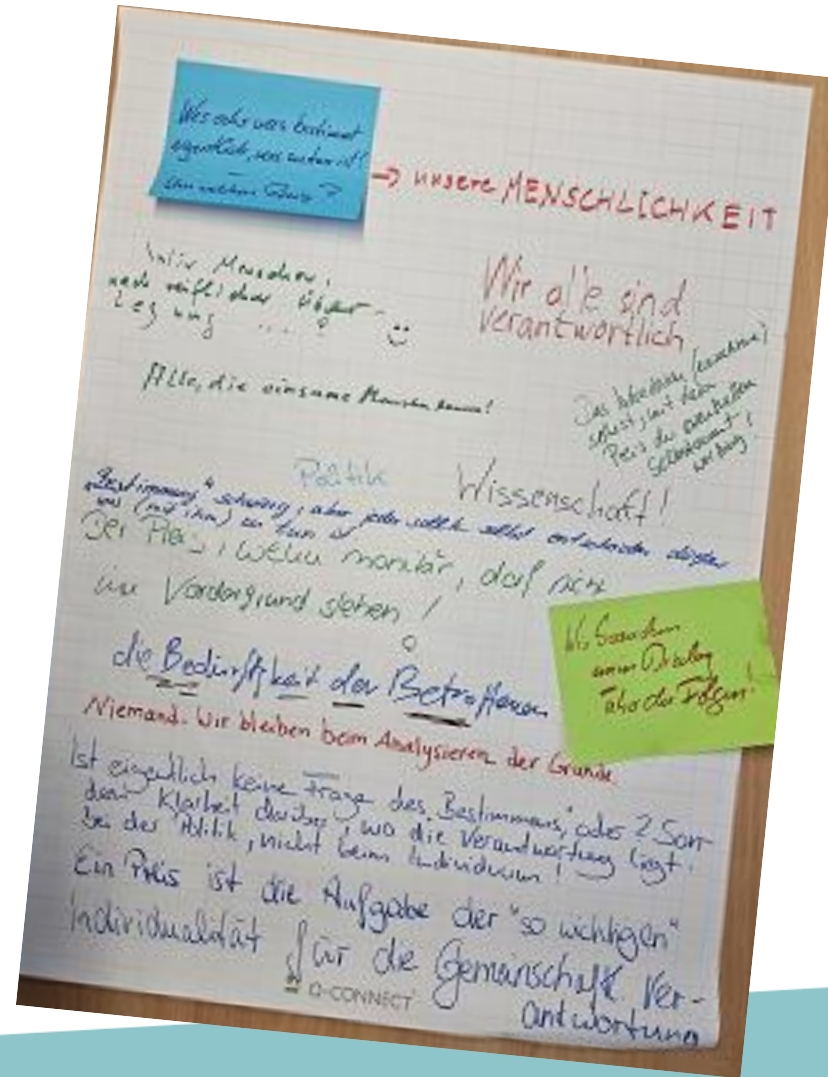 Wer oder was bestimmt
eigentlich, was zu tun ist?
Zu welchem Preis?
→ unsere MENSCHLICHKEIT
Wir Menschen,
nach reiflicher Über-
legung ....!
Wir alle sind
verantwortlich
Alle, die einsame Menschen kennen!
Das Individuum (einsame)
selbst, mit dem
Preis der
Politik
Wissenschaft!
"Bestimmung" schwierig, aber jeder sollte selbst entscheiden dürfen
was (mit ihm) zu tun ist
Der Preis, welcher monitär, darf nicht
im Vordergrund stehen!
die Bedürftigkeit der Betroffenen
Wir brauchen
einen Dialog
über die Folgen!
Niemand. Wir bleiben beim Analysieren der Gründe
Ist eigentlich keine Frage des "Bestimmens", oder? Son-
dern Klarheit darüber, wo die Verantwortung liegt.
bei der Politik, nicht beim Individuum!
Ein Preis ist die Aufgabe der "so wichtigen"
Individualität für die Gemeinschaft. Ver-
antwortung
Q-CONNECT